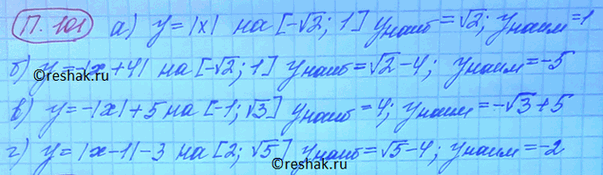 П. 101 а) y = |x| на [-√2; 1] yнаиб = √2; yнаим = 1
б) y = -|x + 4| на [-√2; 1] yнаиб = √2 - 4; yнаим = -5
©reshak.ru
в) y = -|x| + 5 на [-1; √3] yнаиб = 4; yнаим = -√3 + 5
г) y = |x - 1| - 3 на [2; √5] yнаиб = √5 - 4; yнаим = -2
©reshak.ru